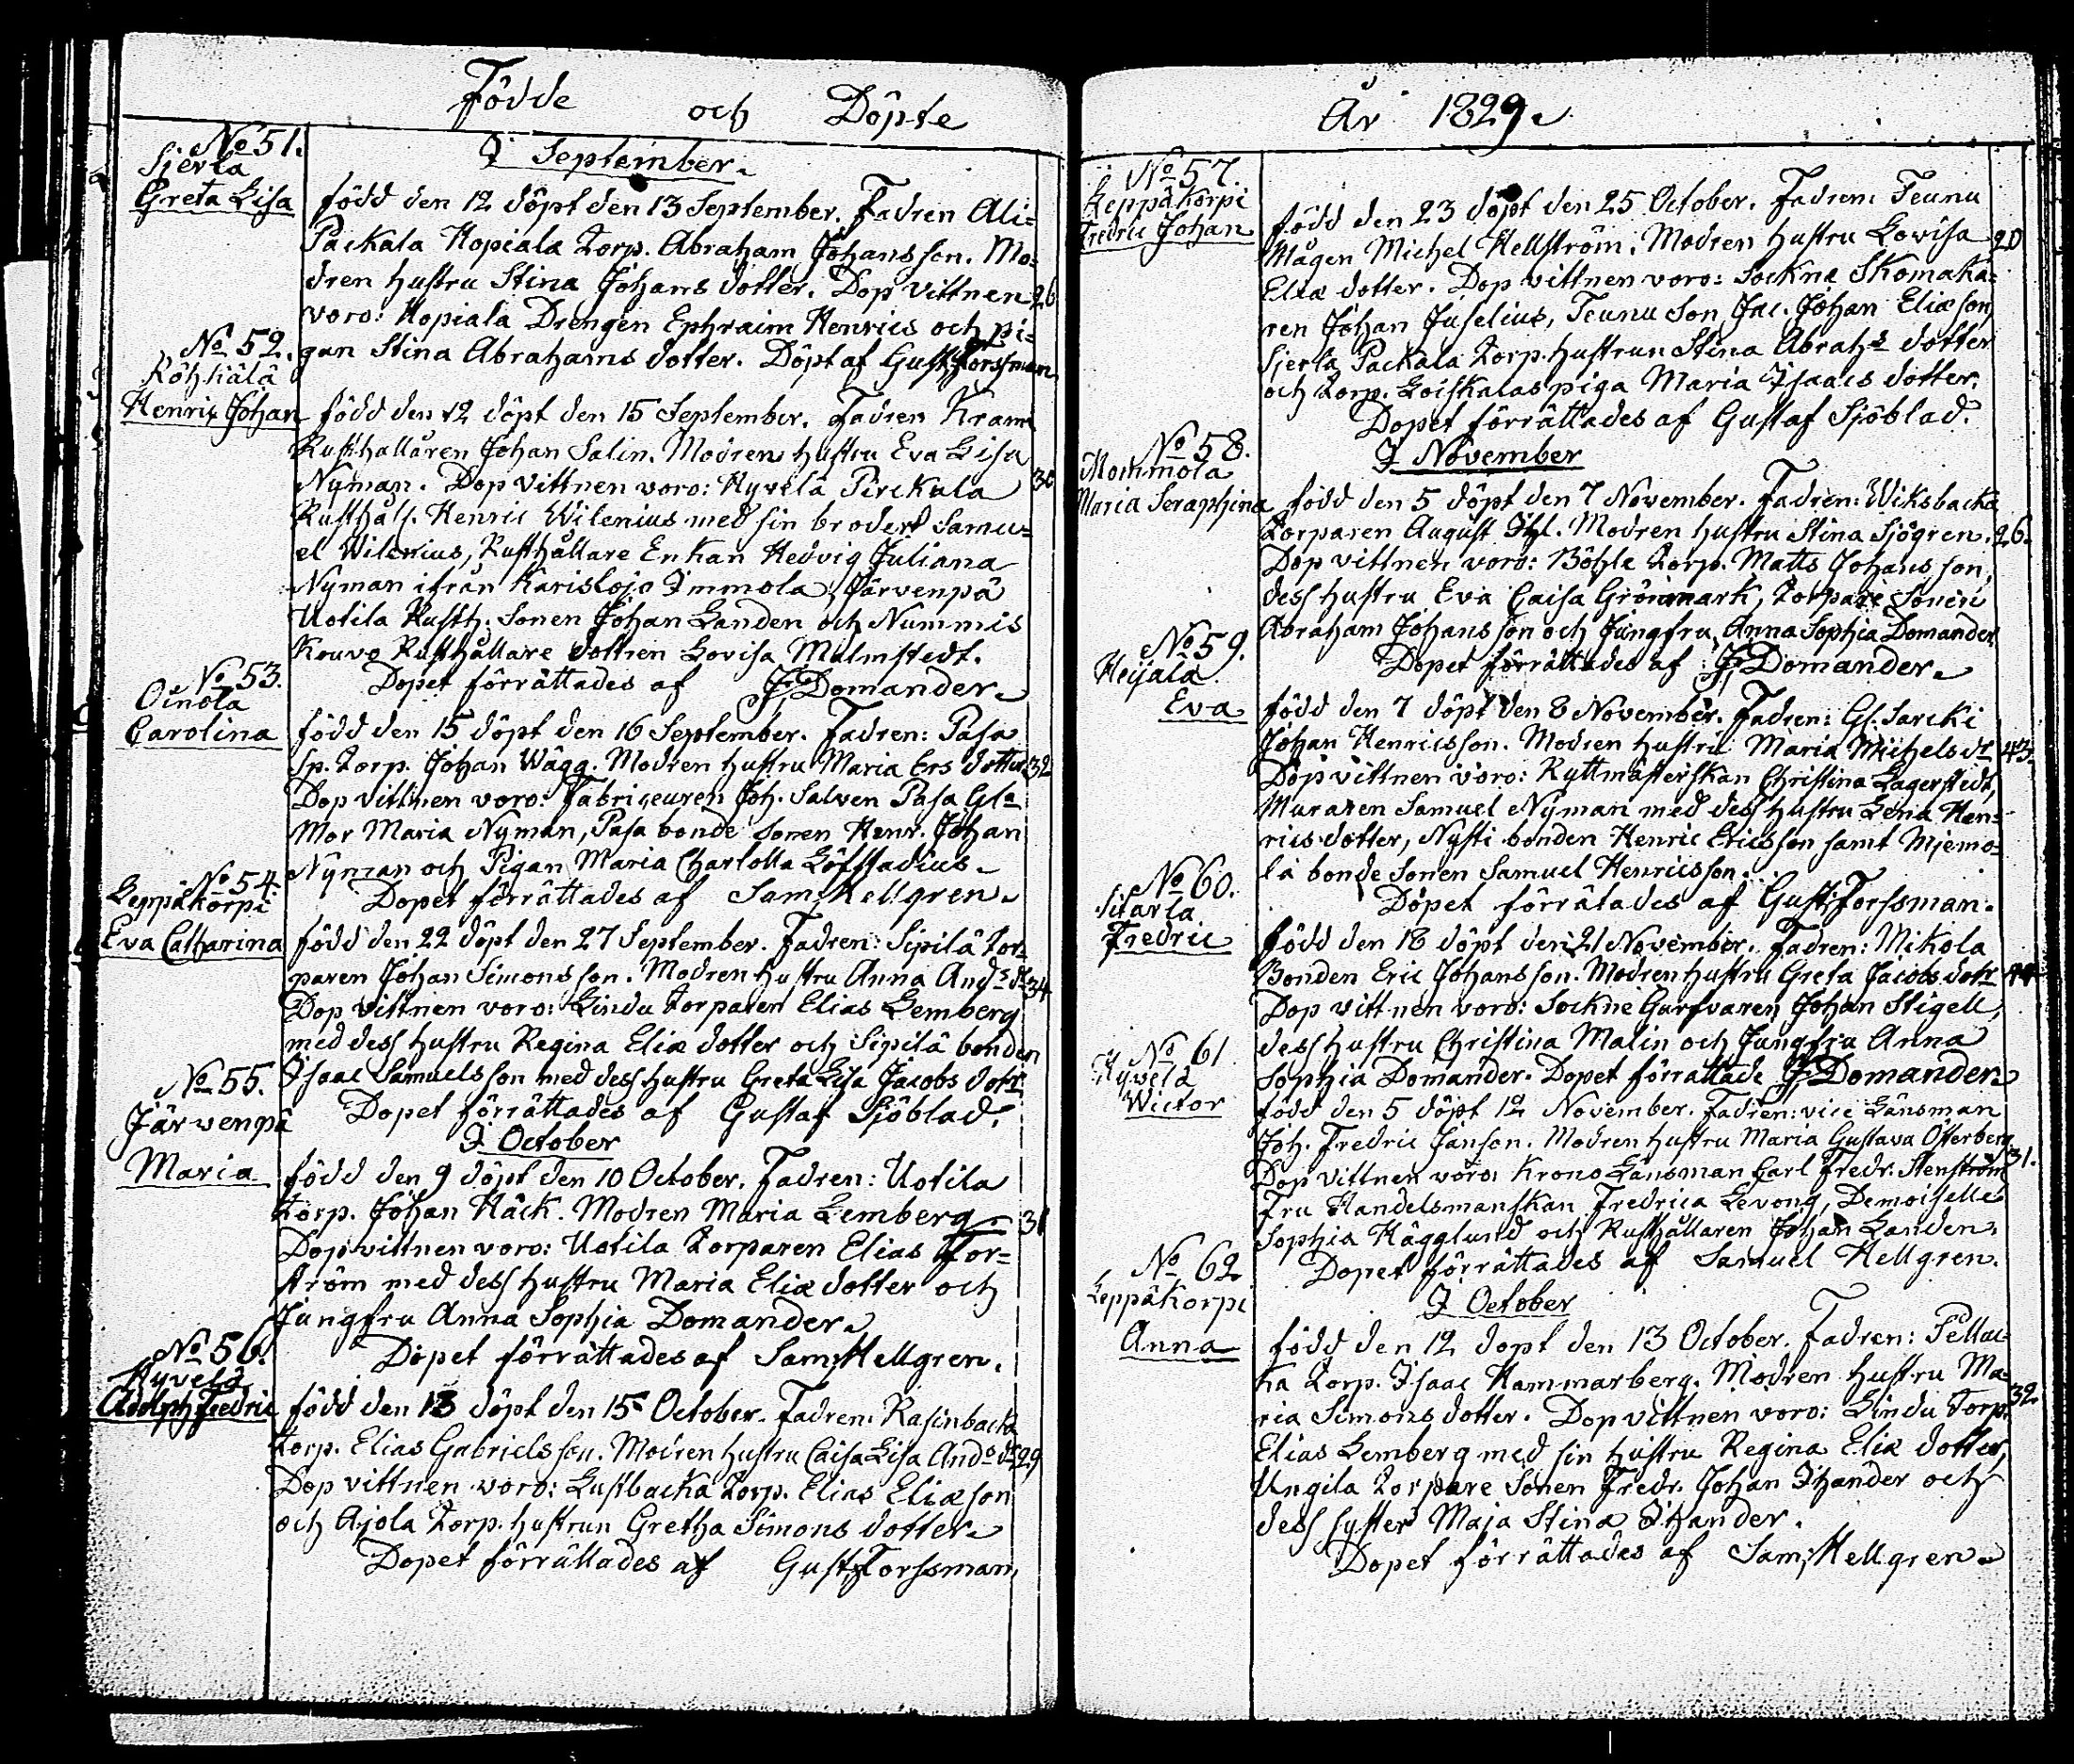 Födde och Döpte
No 51.
Sierla
Greta Lisa
I September.
född den 12 döpt den 13 September. Fadren Ali=
Packala Hopiala Torp. Abraham Johansson. Mo=
dren hustru Stina Johans dotter. Dop vittnen 26
voro: Hopiala Drengen Ephraim Henrics och pi=
gan Stina Abrahams dotter. Döpt af Gust. Forssman
No 52.
Röhkälä
Henric Johan
född den 12 döpt den 15 September. Fadren Kram
Rusthållaren Johan Salin. Modren hustru Eva Lisa
Nyman. Dop vittnen voro: Hyvelä Pirckala 30
Rusthåll. Henric Wilenius med sin broder Samu=
el Wilenius, Rusthållare Enkan Hedvig Juliana
Nyman ifrån Karislojo Immola, Järvenpä
Uotila Rusth. Sonen Johan Landen och Nummis
Kouvo Rusthållare dottren Lovisa Malmstedt.
Dopet förrättades af J Domander.
No 53.
Oinola
Carolina
född den 15 döpt den 16 September. Fadren: Pasa
Sp. Torp. Johan Wägg. Modren hustru Maria Ers dotter 32
Dop vittnen voro: Fabriqeuren Joh. Salven Pasa Gla
Mor Maria Nyman, Pasa bonde Sonen Henr. Johan
Nyman och Pigan Maria Charlotta Löfstadius.
Dopet förrättades af Sam. Hellgren.
No 54.
Leppäkorpi
Eva Catharina
född den 22 döpt den 27 September. Fadren: Sipilä Tor=
paren Johan Simonsson. Modren hustru Anna Ands dr 34
Dop vittnen voro: Lindu Torparen Elias Lemberg
med dess hustru Regina Eliæ dotter och Sipilä bonden
Isaac Samuelsson med dess hustru Greta Lisa Jacobs dotr
Dopet förrättades af Gustaf Sjöblad.
No 55.
Järwenpä
Maria
I October
född den 9 döpt den 10 October. Fadren: Uotila
Torp. Johan Häck. Modren Maria Lemberg. 31
Dop vittnen voro: Uotila Torparen Elias For=
ström med dess hustru Maria Eliæ dotter och
Jungfru Anna Sophia Domander.
Dopet förrättades af Sam. Hellgren.
No 56.
Hyvelä
Adolph Fredric
född den 13 döpt den 15 October. Fadren: Rasinbacka
Torp. Elias Gabrielsson. Modren hustru Caisa Lisa Ands dr 29
Dop vittnen voro: Lustbacka Torp. Elias Eliæson
och Ajola Torp. hustrun Gretha Simons dotter.
Dopet förrättades af Gust. Forssman.
År 1829.
No 57.
Leppäkorpi
Fredric Johan
född den 23 döpt den 25 October. Fadren: Teunu
Mågen Michel Hellström. Modren hustru Lovisa 20
Eliæ dotter. Dop vittnen voro: Sockne Skomaka=
ren Johan Juselius, Teunu Son Jac. Johan Eliæson,
Sierla Packala Torp. hustrun Stina Abrahs dotter
och Torp. Loiskalas piga Maria Isaacs dotter.
Dopet förrättades af Gustaf Sjöblad.
No 58.
Mommola
Maria Seraphina
I November
född den 5 döpt den 7 November. Fadren: Wiksbacka
Torparen August Ihl. Modren hustru Stina Sjögren. 26.
Dop vittnen voro: Böhle Torp. Matts Johansson,
dess hustru Eva Caisa Grönmark, Torpare Sonen
Abraham Johansson och Jungfru Anna Sophia Domander
Dopet förrättades af J Domander.
No 59.
Heijala
Eva
född den 7 döpt den 8 November. Fadren: Gl. Sarcki
Johan Henricsson. Modren hustru Maria Michels dr 43.
Dop vittnen voro: Ryttmästerskan Christina Lagerstedt,
Muraren Samuel Nyman med dess hustru Lena Hen=
rics dotter, Nysti bonden Henric Ericsson samt Miemo=
la bonde Sonen Samuel Henricsson.
Döpet förrätades af Gust. Forssman.
No 60.
Sitarla
Fredric
född den 18 döpt den 21 November. Fadren: Mikola
Bonden Eric Johansson. Modren hustru Greta Jacobs dotr 44
Dop vittnen voro: Sockne Garfvaren Johan Stigell,
dess hustru Christina Malin och Jungfru Anna
Sophia Domander. Dopet förrättade J Domander
No 61
Hyvelä
Wictor
född den 5 döpt 12 November. Fadren: vice Länsman
Joh. Fredric Janson. Modren hustru Maria Gustava Österberg
Dop vittnen voro: Krono Länsman Carl Fredr. Stenström 31.
Fru Handelsmanskan Fredrica Levong, Demoiselle
Sophia Hägglund och Rusthållaren Johan Landen.
Dopet förrättades af Samuel Hellgren.
No 62
Leppäkorpi
Anna
I October
född den 12 döpt den 13 October. Fadren: Pellac=
ka Torp. Isaac Hammarberg. Modren hustru Ma=
ria Simons dotter. Dop vittnen voro: Lindu Torp. 32
Elias Lemberg med sin hustru Regina Eliæ dotter,
Ungila Torpare Sonen Fredr. Johan Ithander och
dess syster Maja Stina Ithander.
Dopet förrättades af Sam. Hellgren.